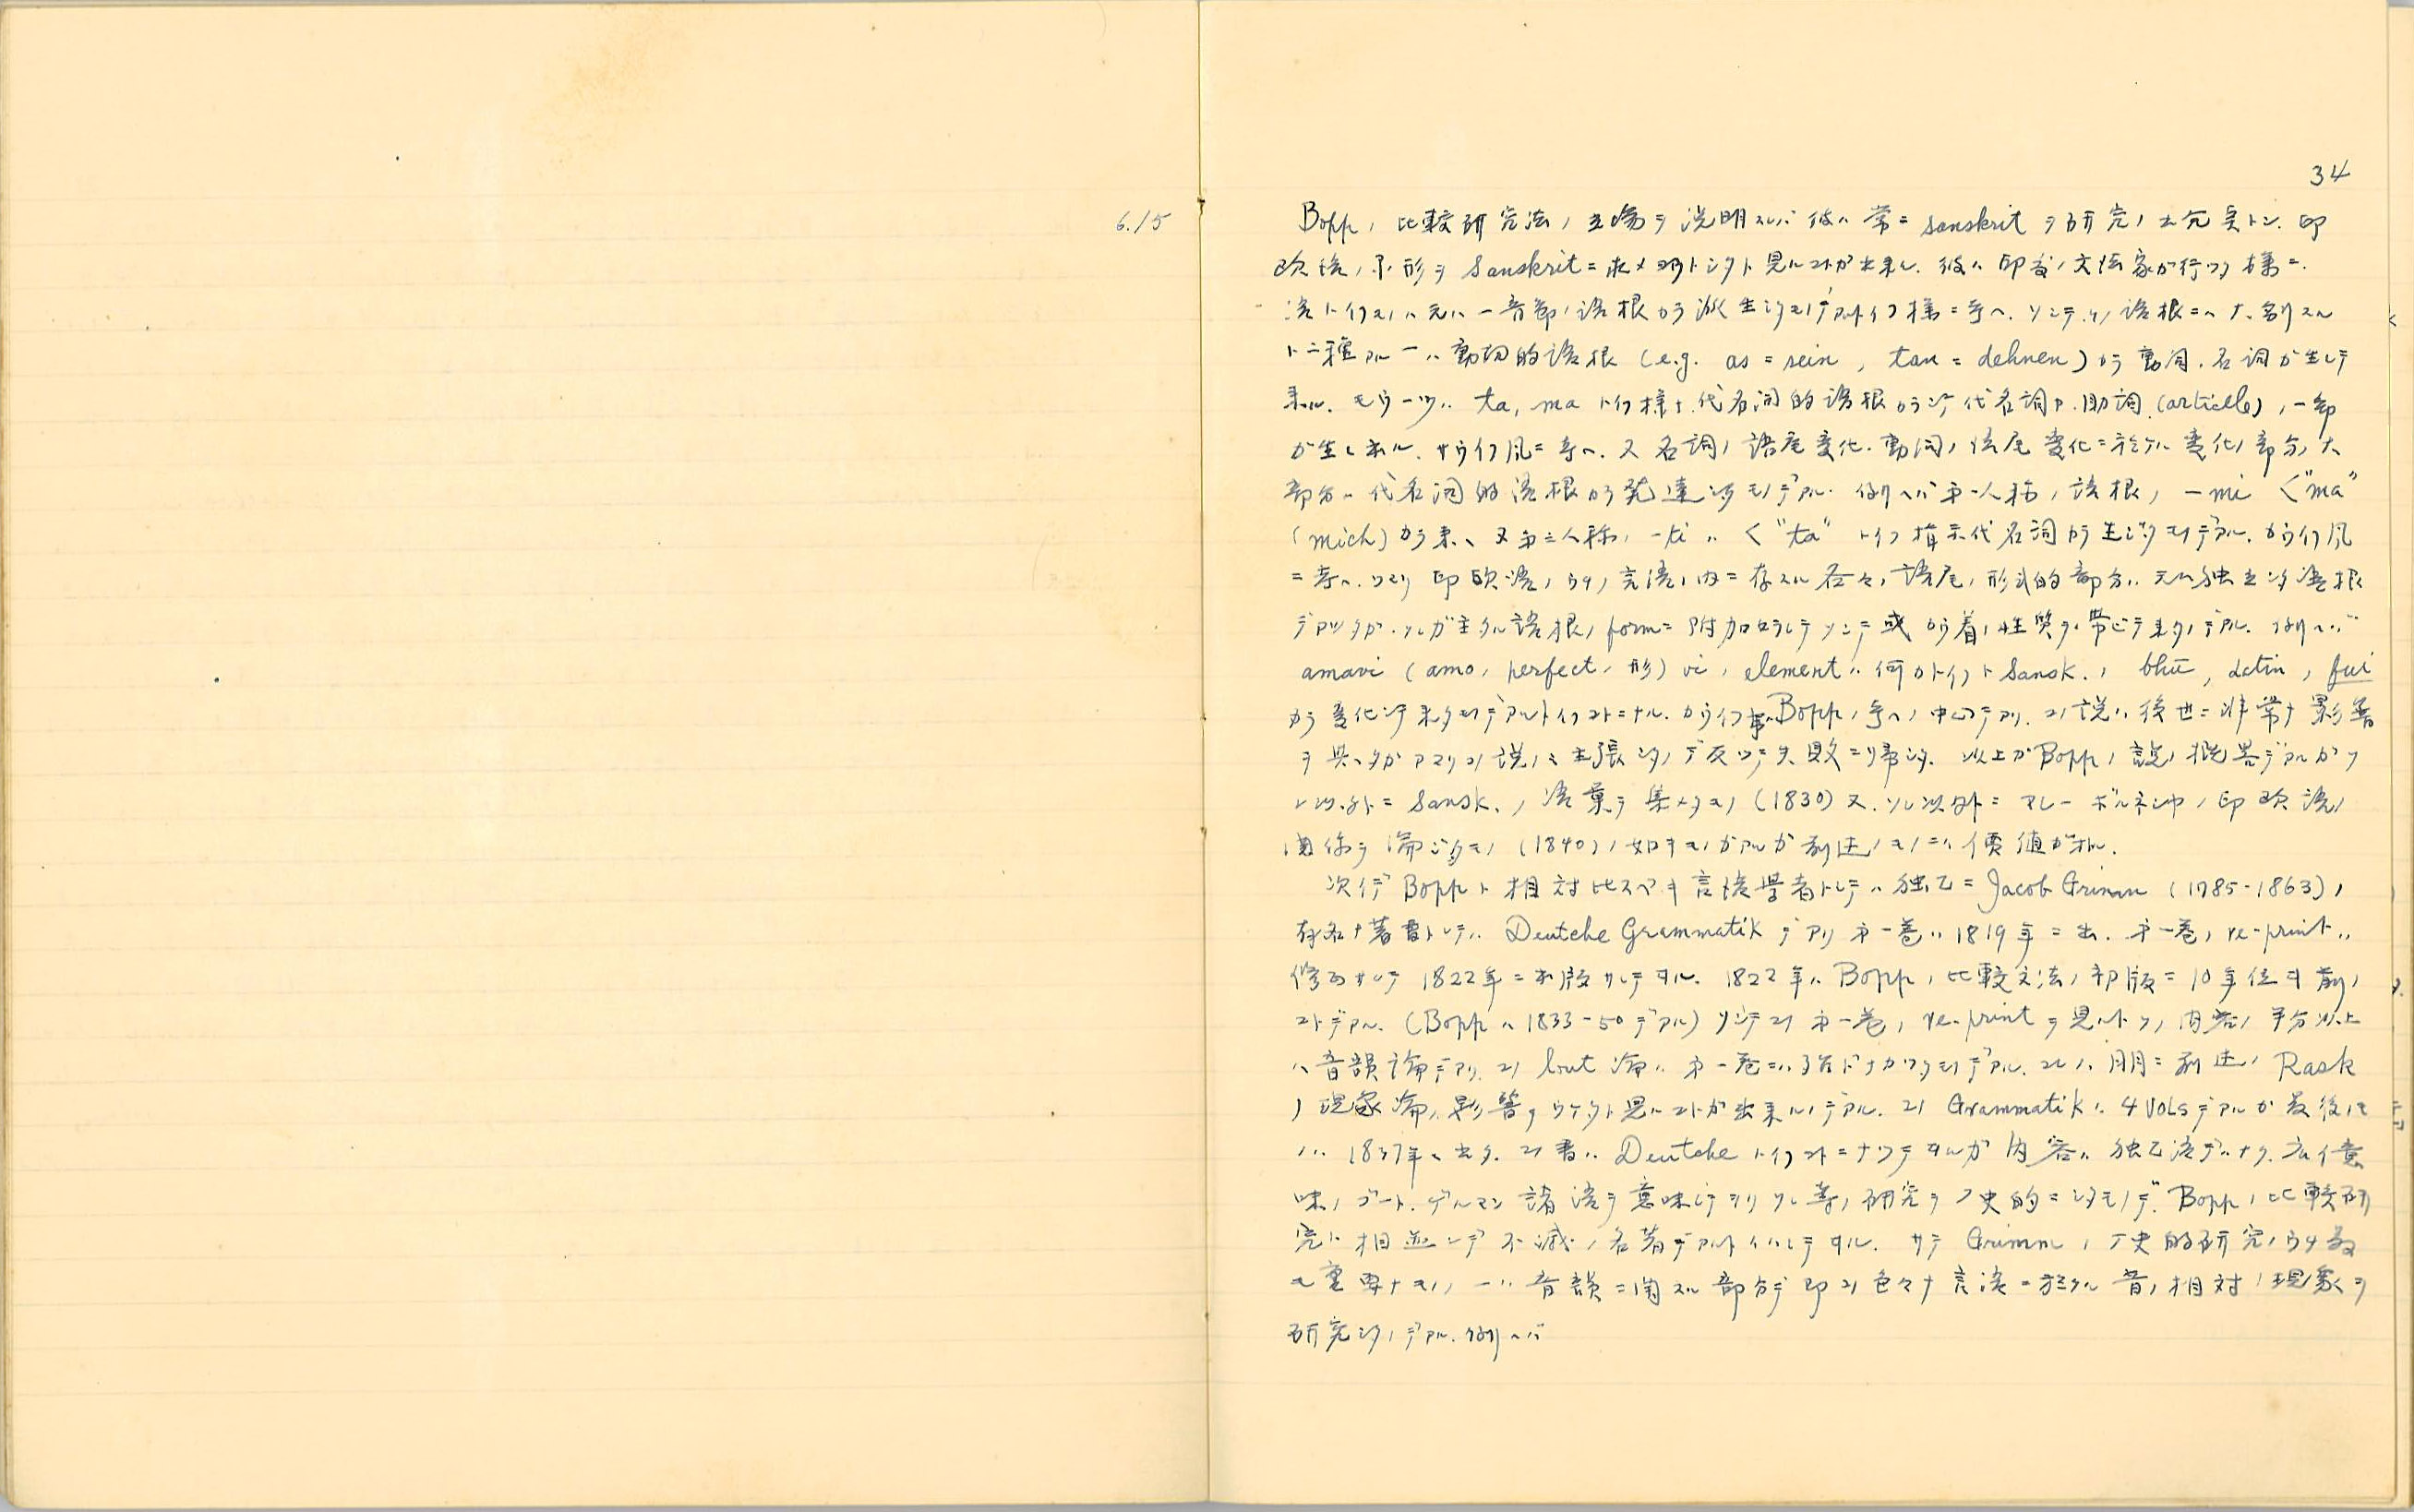 34
6./5
Bopp、比較研究法ノ立場ヲ説明スレバ 彼ハ常ニ sanskrit ヲ研究ノ 印
欧語ノ原形ヲ Sanskrit ニ求メヨウトシタト見ルコトガ出来ル. 彼ハ印度ノ文法家ガ行ツタ様ニ.
語トイフモノハ元ハ一音節ノ語根カラ派生シタモノデアルトイフ様ニ考ヘ. ソシテソノ語根ニハ大別スル
ト二種アル 一ハ動詞的語根 (e.g. as = sein , tan = dehnen) カラ動詞.名詞ガ生レテ
来ル. モウ一ツハ ta, ma トイフ様ナ代名詞的語根カラシテ代名詞ヤ.助詞 (article) ノ一部
ガ生レ来ル. サウイフ風ニ考ヘ. 又名詞ノ語尾変化.動詞ノ語尾変化ニ於ケル変化ノ部分ノ大
部分ハ代名詞的語根カラ発達シタモノデアル. 例ヘバ第一人称ノ語根ノ -mi <"ma"
(mich) カラ来、又第三人称ノ -ti ハ <"ta" トイフ指示代名詞カラ生ジタモノデアル. カウイフ風
ニ考ヘ. ツマリ印欧語ノウチノ言語ノ内ニ存スル各々ノ語尾ノ形式的部分ハ元ハ独立シタ語根
デアツタガ.ソレガ主タル語根ノ form ニ附加セラレテソシテ或 着ノ性質ヲ帯ビテ来タノデアル. 例ヘバ
amavi (amo ノ perfect ノ形) vi ノ element ハ何カトイフト Sansk. ノ bhū , Latin ノ fui
カラ変化シテ来タモノデアルトイフコトニナル. カウイフ事ガ Bopp ノ考ヘノ中心デアリ. コノ説ハ後世ニ非常ナ影響
ヲ与ヘタガアマリコノ説ノミ主張シタノデ反ツテ失敗ニ帰シタ. 以上ガ Bopp ノ説ノ概略デアルガソ
レ以外ニ Sansk. ノ語彙ヲ集メタモノ (1830) 又.ソレ以外ニマレーボルネシヤノ印欧語ノ
関係ヲ論ジタモノ (1840) ノ如キモノガアルガ前述ノモノニハ価値ガオトル.
次イデ Bopp ト相対比スベキ言語学者トシテハ独乙ニ Jacob Grimm (1785-1863) ノ
有名ナ著書トシテハ Deutche Grammatik デアリ第一巻ハ 1819年ニ出. 第一巻ノ re-print ハ
修正サレテ 1822年ニ出版サレテヰル. 1822年ハ Bopp ノ比較文法ノ初版ニ 10年位モ前ノ
コトデアル. (Bopp ハ 1833-50 デアル) ソシテコノ第一巻ノ re-print ヲ見ルトソノ内容ノ半分以上
ハ音韻論デアリ. コノ laut 論ハ第一巻ニハ殆ドナカツタモノデアル. コレハ明ニ前述ノ Rask
ノ現象論ノ影響ヲウケタト見ルコトガ出来ルノデアル. コノ Grammatik ハ 4 Vols デアルガ最後ノモ
ノハ 1837年ニ出タ. コノ書ハ Deutche トイフコトニナツテヰルガ内容ハ独乙語デハナク.広イ意
味ノゴート.ゲルマン諸語ヲ意味シテヲリソレ等ノ研究ヲ史的ニシタモノデ Bopp ノ比較研
究ト相並ンデ不滅ノ名著デアルトイハレテヰル. サテ Grimm ノ歴史的研究ノウチ最
モ重要ナモノハ一ハ音韻ニ関スル部分デ即コノ色々ナ言語ニ於ケル音ノ相対ノ現象ヲ
研究シタノデアル. 例ヘバ